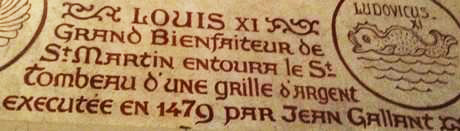 LOUIS XI
GRAND BIENFAITEUR DE
ST MARTIN ENTOURA LE ST
TOMBEAU D'UNE GRILLE D'ARGENT
EXECUTÉE EN 1479 PAR JEAN GALLANT
LUDOVICUS
XI